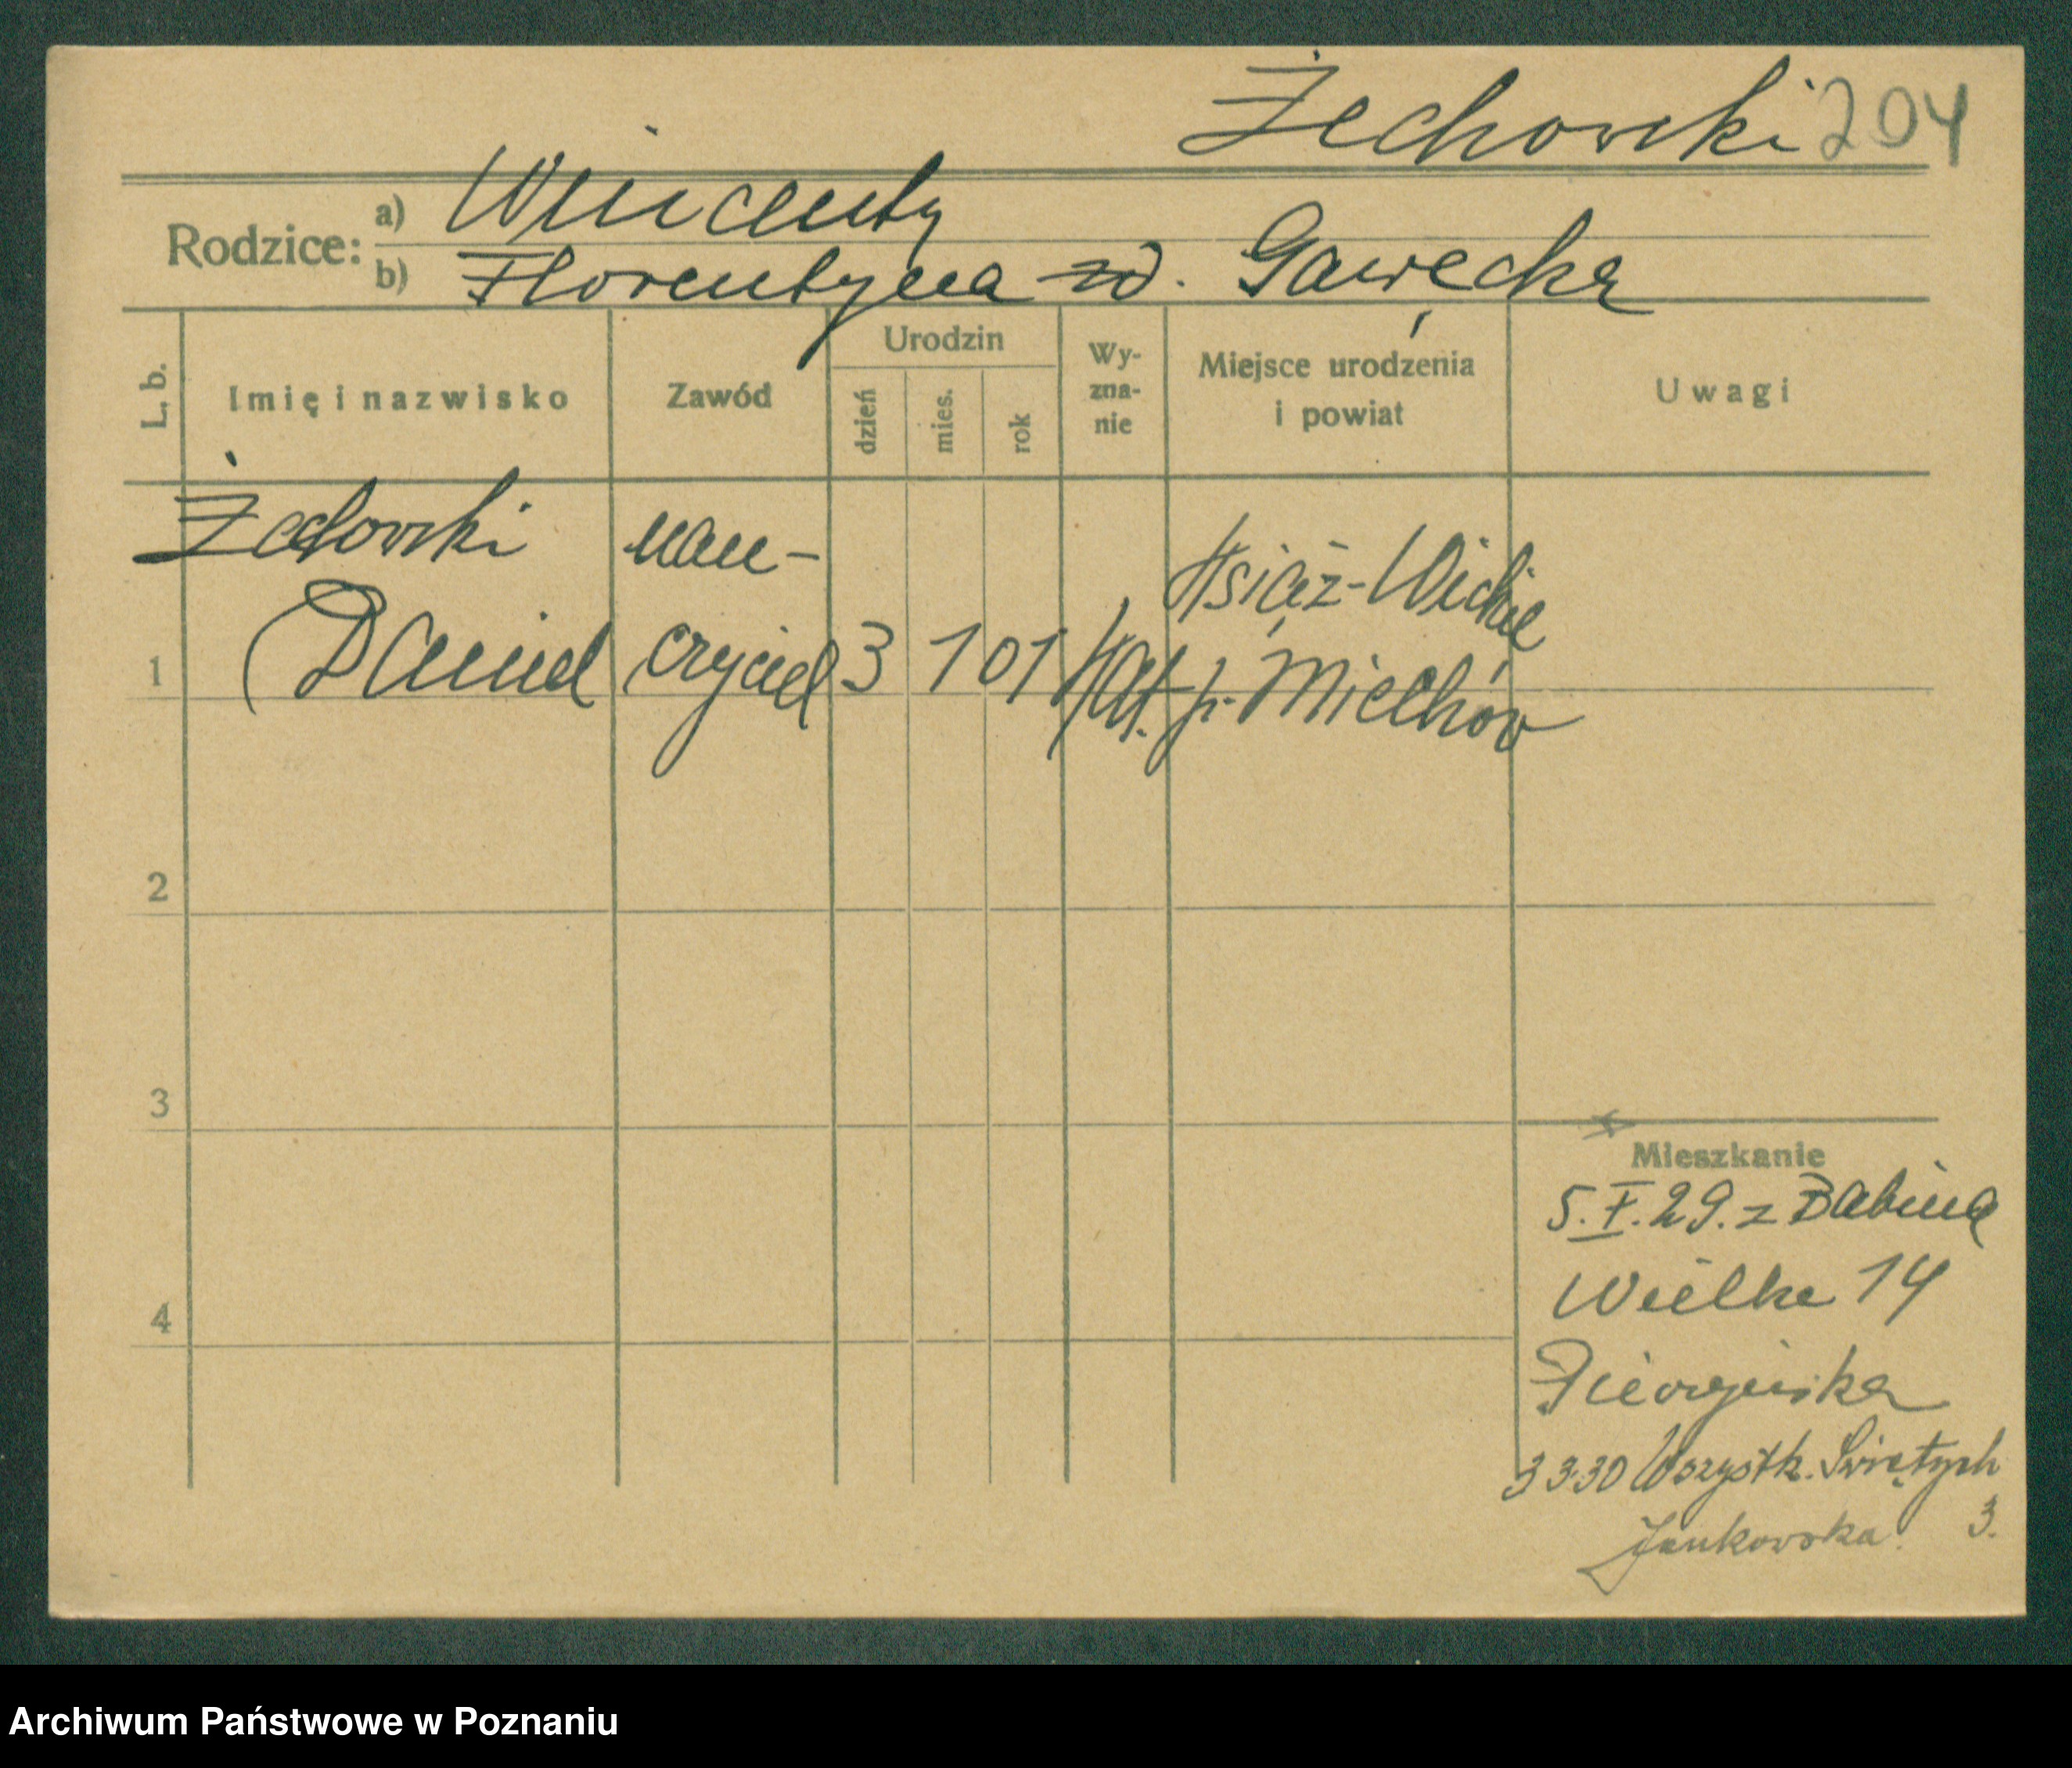 Żechowski 204
Rodzice: a) Wincenty
b) Florentyna zd. Gawęcka
L. b.
Imię i nazwisko
Zawód
Urodzin
dzień
mies.
rok
Wy-
zna-
nie
Miejsce urodzenia
i powiat
Uwagi
Żechowski nau- Książ-Wielkie
1 Daniel czyciel 3 1 01 Kat. p. Miechów
2
3
4
Mieszkanie
5.I.29. z Babina
Wielka 14
33.30 Wszystk. Świętych
Jankowska. 3.
Archiwum Państwowe w Poznaniu